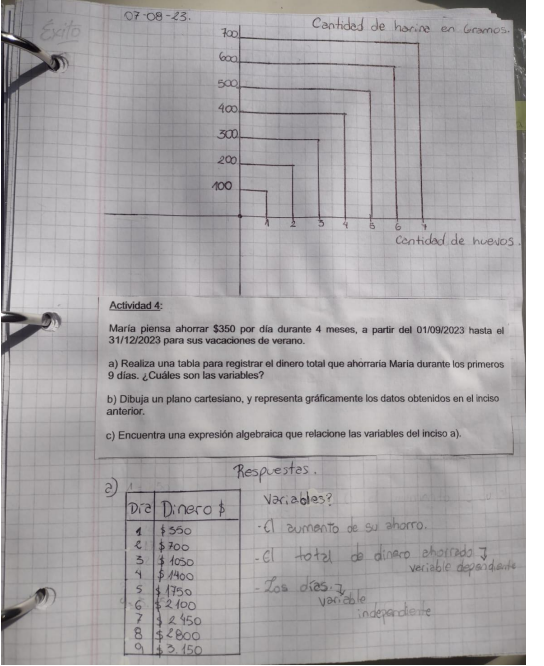 Éxito
07-08-23.
Cantidad de harina en Gramos.
700
600
500
400
300
200
100
1 2 3 4 5 6 7
Cantidad de huevos.
Actividad 4:
María piensa ahorrar $350 por día durante 4 meses, a partir del 01/09/2023 hasta el
31/12/2023 para sus vacaciones de verano.
a) Realiza una tabla para registrar el dinero total que ahorraría María durante los primeros
9 días. ¿Cuáles son las variables?
b) Dibuja un plano cartesiano, y representa gráficamente los datos obtenidos en el inciso
anterior.
c) Encuentra una expresión algebraica que relacione las variables del inciso a).
Respuestas.
a)
Día Dinero $
1 $350
2 $700
3 $1050
4 $1400
5 $1750
6 $2100
7 $2450
8 $2800
9 $3.150
Variables?
-El aumento de su ahorro.
-El total de dinero ahorrado
variable dependiente
-Los días.
variable
independiente